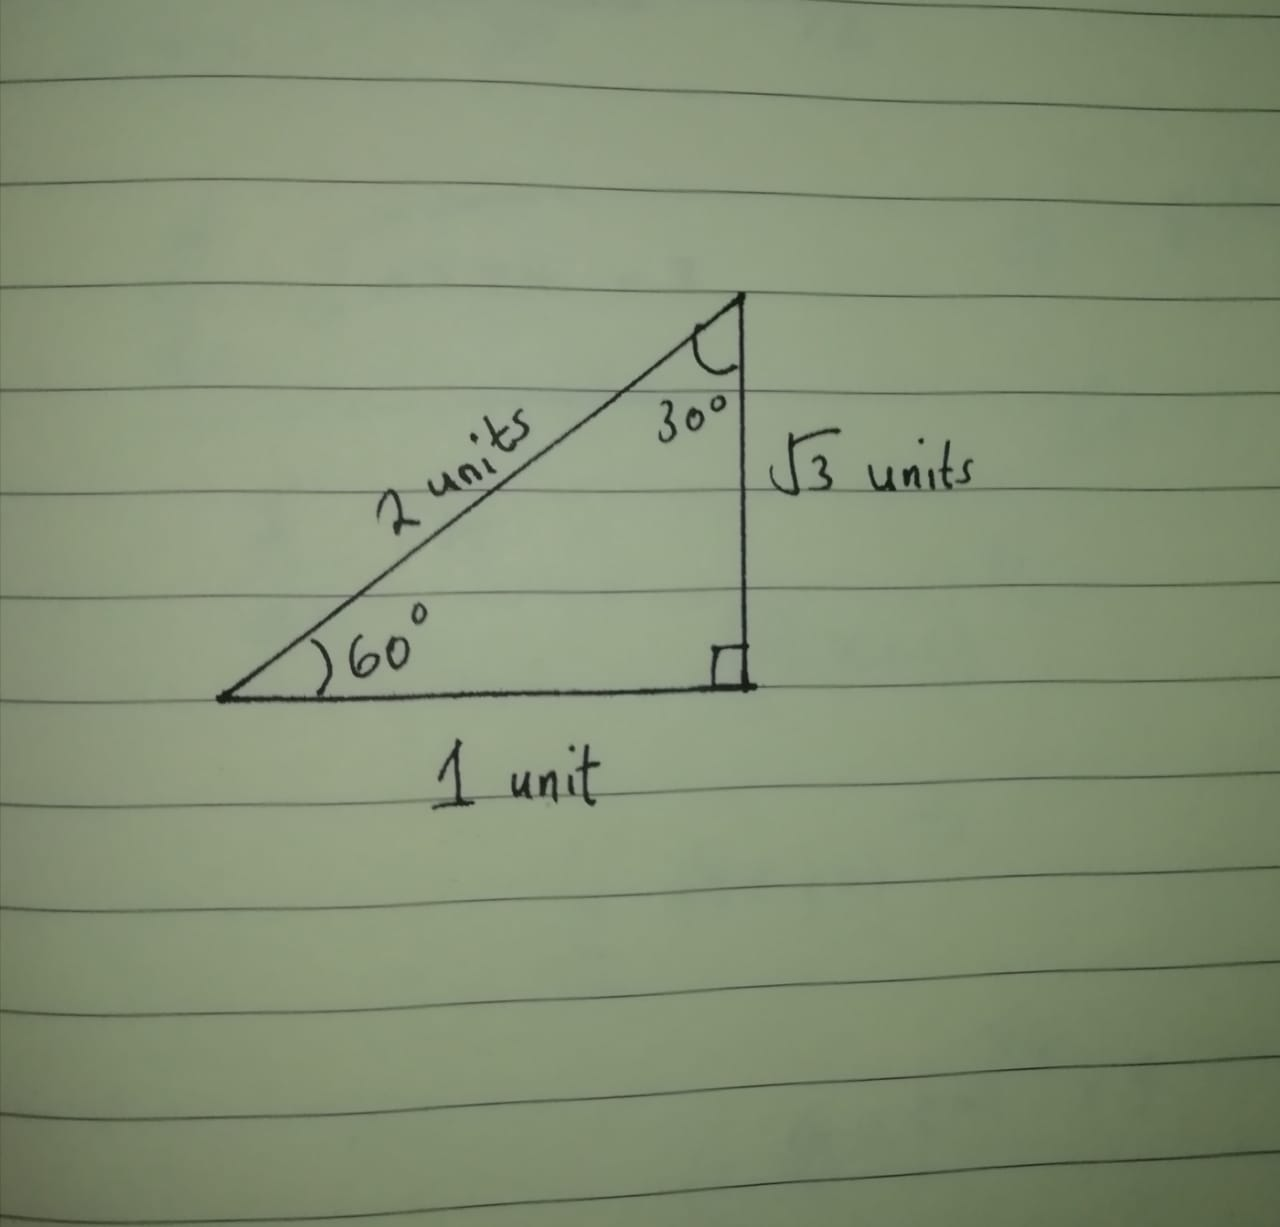 30°
2 units
√3 units
60°
1 unit